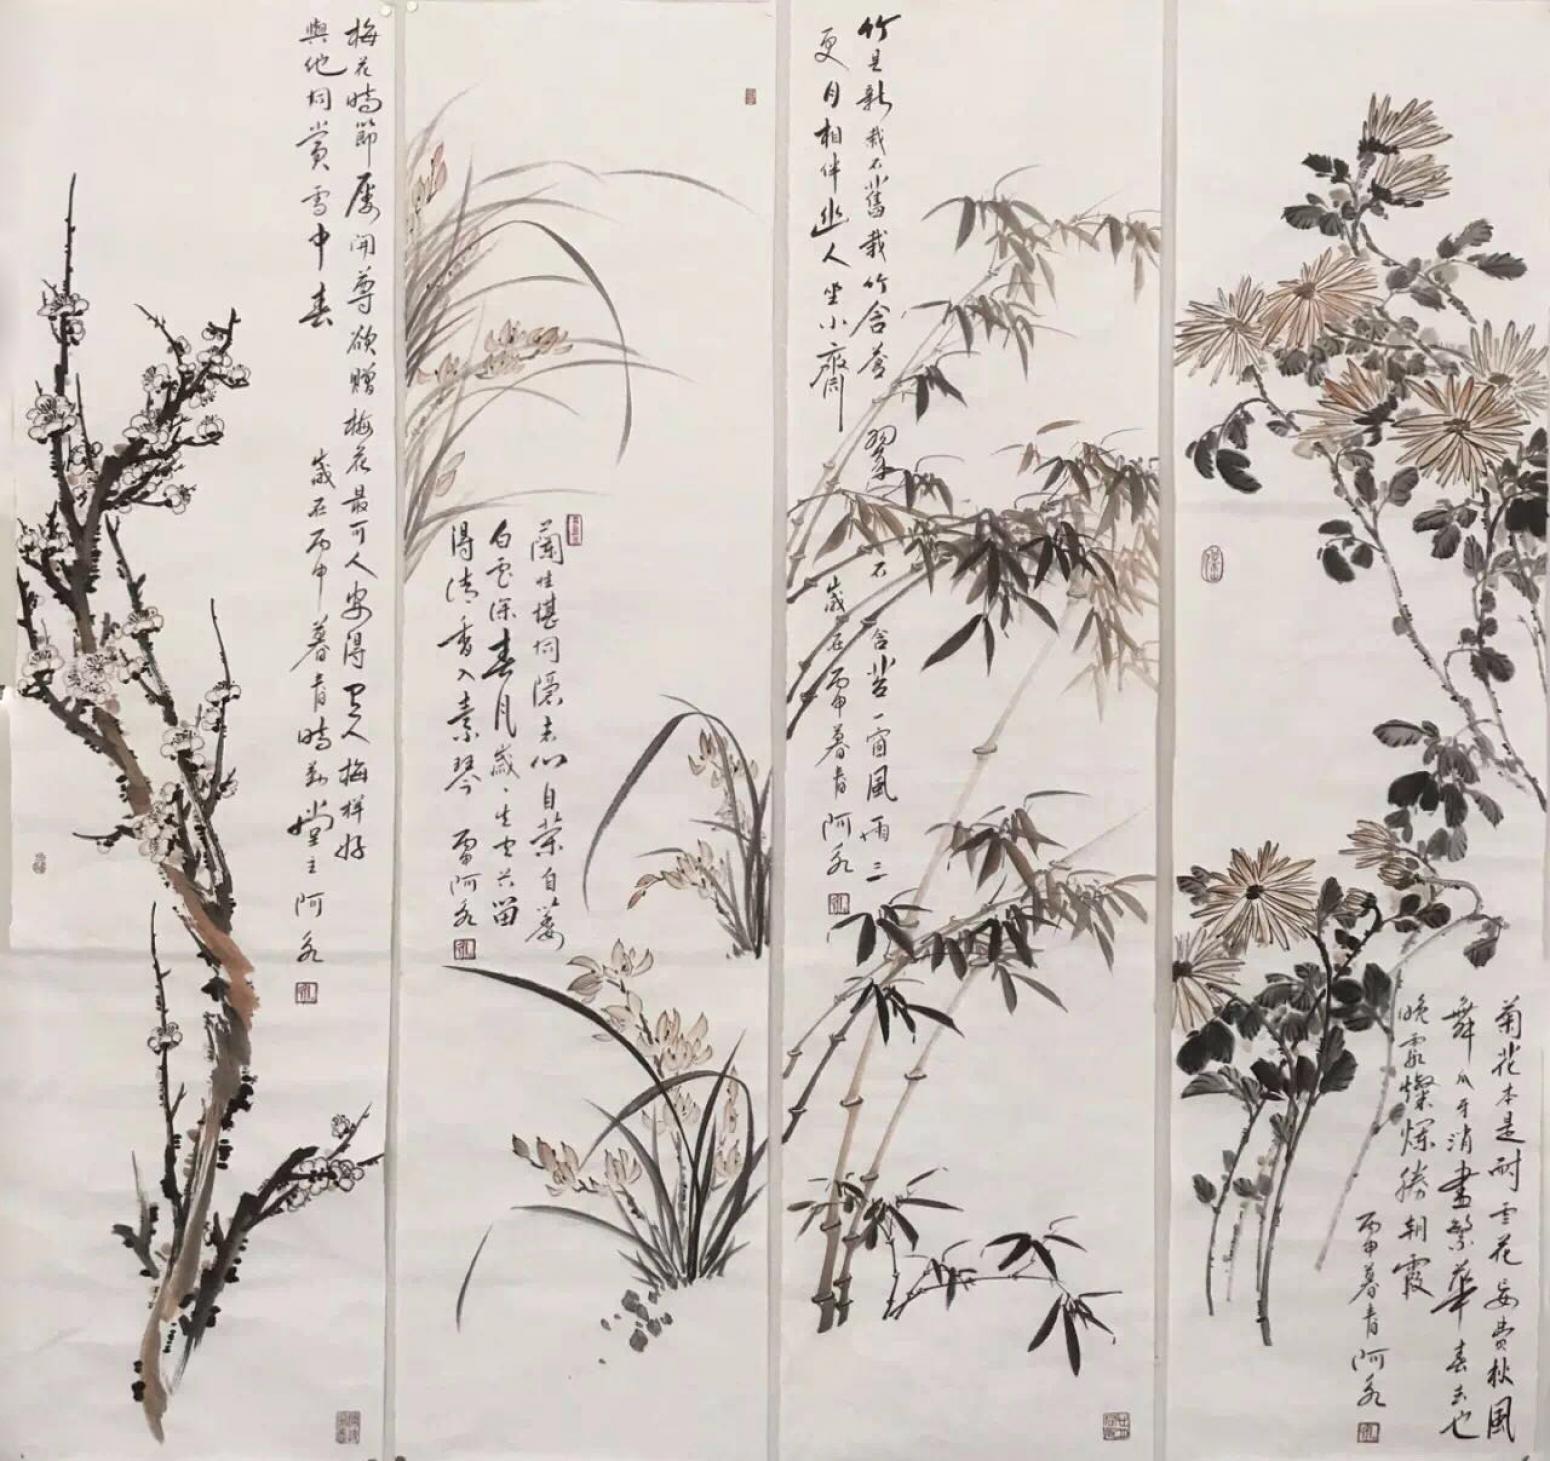 梅花時節屢開尊欲贈梅花最可人安得人梅樣好
與他同賞雪中春
歲在丙申暮春時堂主阿永
蘭性堪同隱者心自榮自萎
白雲深春風歲歲生空谷留
得清香入素琴 丙申阿永
竹是新栽石舊栽竹含蒼翠石含苔一窗風雨三
更月相伴幽人坐小齋
歲在丙申暮春阿永
菊花本是耐雪花妄費秋風
舞爪牙消盡繁華春去也
晚霞燦爛勝朝霞
丙申暮春阿永